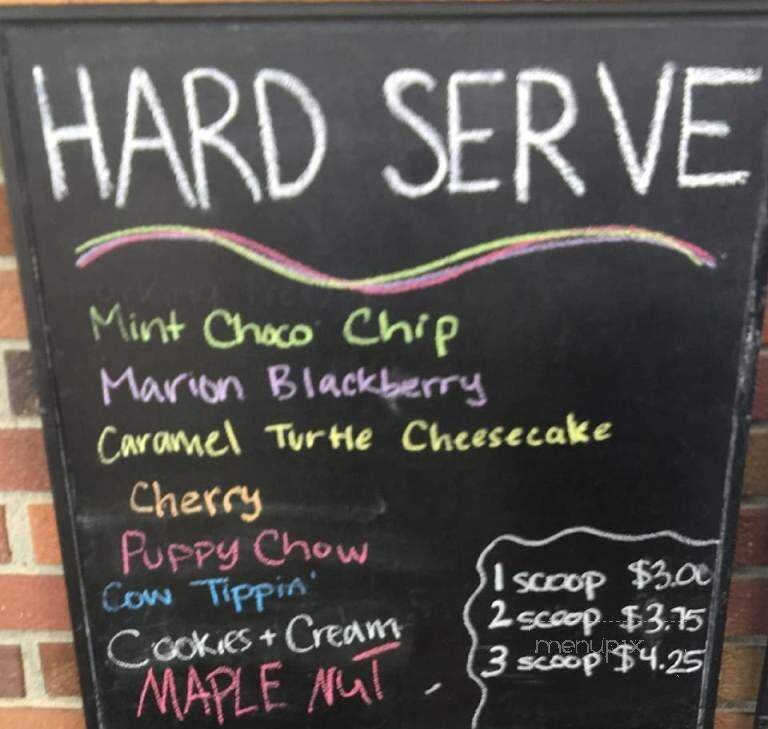 HARD SERVE
Mint Choco Chip
Marion Blackberry
Caramel Turtle Cheesecake
Cherry
Puppy Chow
Cow Tippin'
Cookies + Cream
MAPLE NUT
1 scoop $3.00
2 scoop $3.75
menupix
3 scoop $4.25